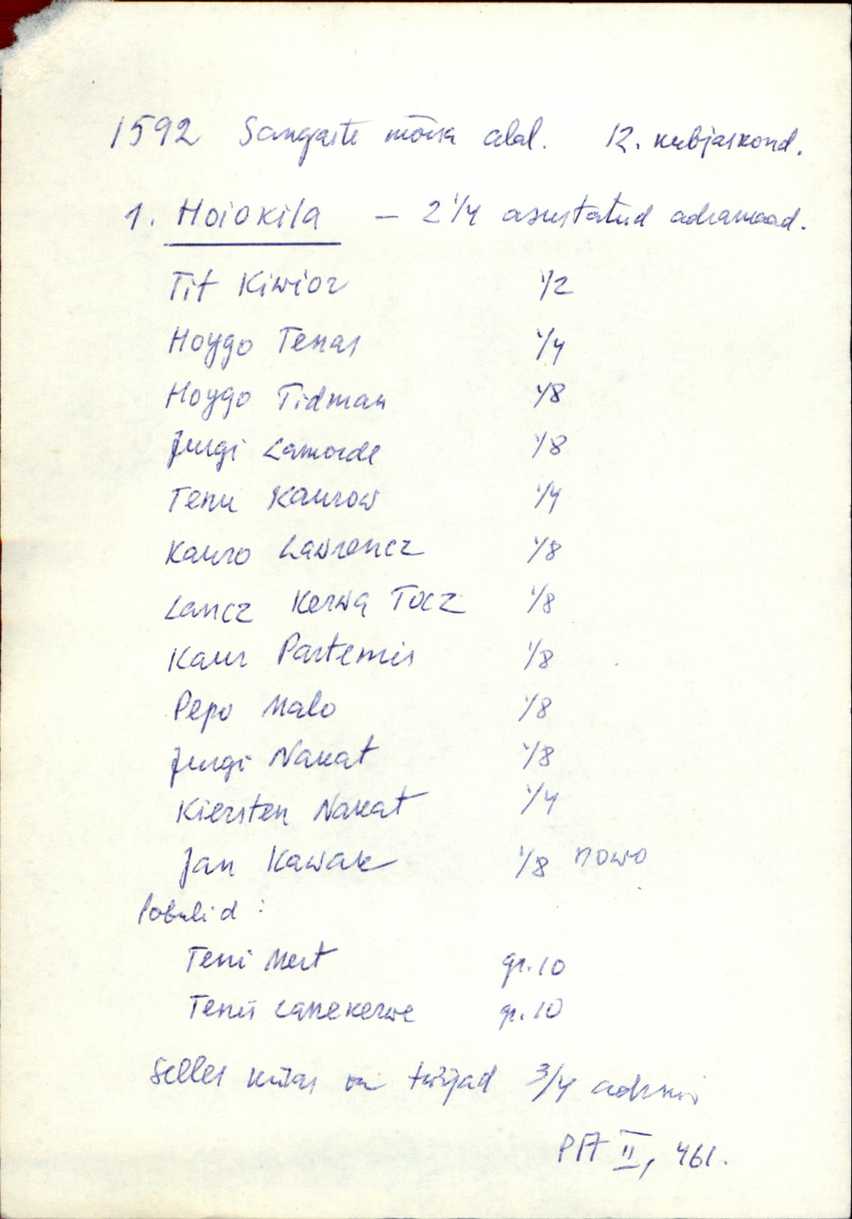 1592 Sangaste mõisa alal. 12. kubjaskond.
1. Hoiokila – 2 1/4 asustatud adramaad.
Tit Kiwior 1/2
Hoygo Tenas 1/4
Hoygo Tidman 1/8
Jurgi Lamorde 1/8
Tenu Kaurow 1/4
Kauro Lawrencz 1/8
Lancz Kerwa Tocz 1/8
Kaur Partemis 1/8
Pepo Malo 1/8
Jurgi Nakat 1/8
Kiersten Nakat 1/4
Jan Kawak 1/8 nowo
Pobulid:
Teni Mert gr. 10
Tenis Lanekerwe gr. 10
Selles külas on tühjad 3/4
PA II, 461.